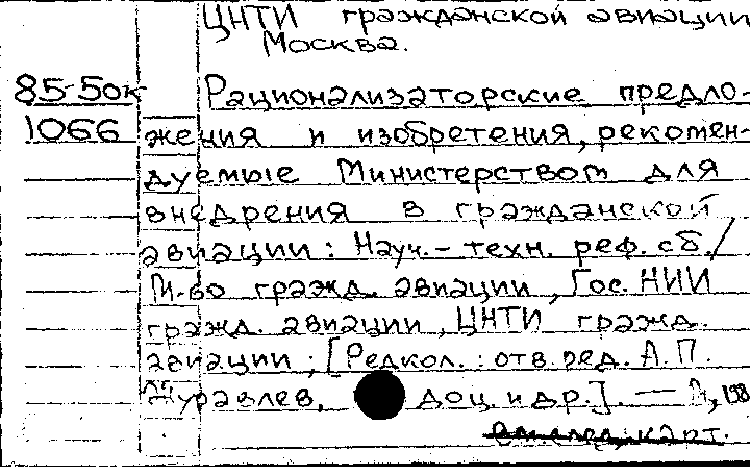 ЦНТИ гражданской авиации
Москва.
85-50к Рационализаторские предло-
1066 жения и изобретения, рекомен-
дуемые Министерством для
внедрения в гражданской
авиации: Науч.-техн. реф. сб./
М-во гражд. авиации, Гос. НИИ
гражд. авиации, ЦНТИ гражд.
авиации; [Редкол.: отв. ред. А.П.
Журавлев, доц. и др.]. — М, 198